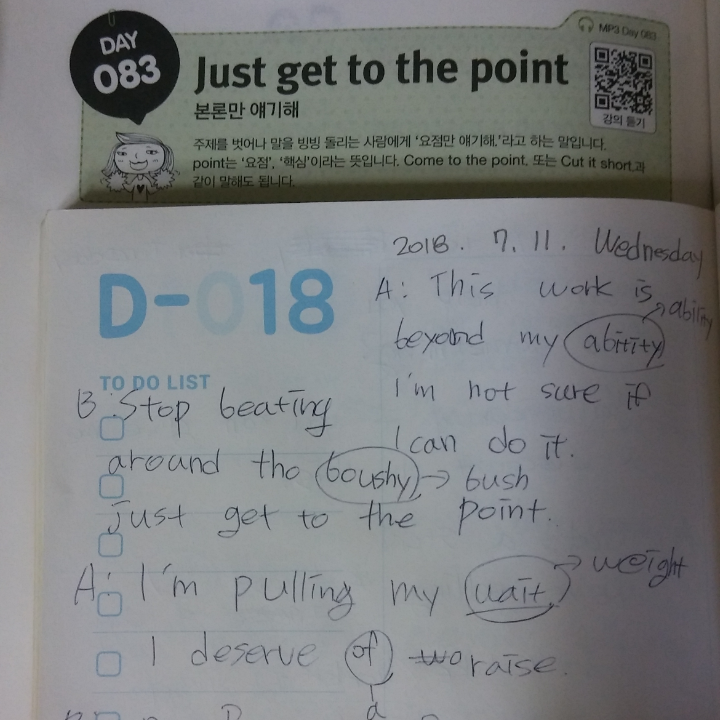 DAY
083
Just get to the point
MP3 Day 083
본론만 얘기해
강의 듣기
주제를 벗어나 말을 빙빙 돌리는 사람에게 '요점만 얘기해.'라고 하는 말입니다.
point는 '요점', '핵심'이라는 뜻입니다. Come to the point. 또는 Cut it short.과
같이 말해도 됩니다.
2018. 7. 11. Wednesday
D-018
TO DO LIST
A: This work is
beyond my abitity → ability
I'm not sure if
I can do it.
B: Stop beating
around the boushy → bush
just get to the point.
A: I'm pulling my wait → weight
I deserve of raise.
a